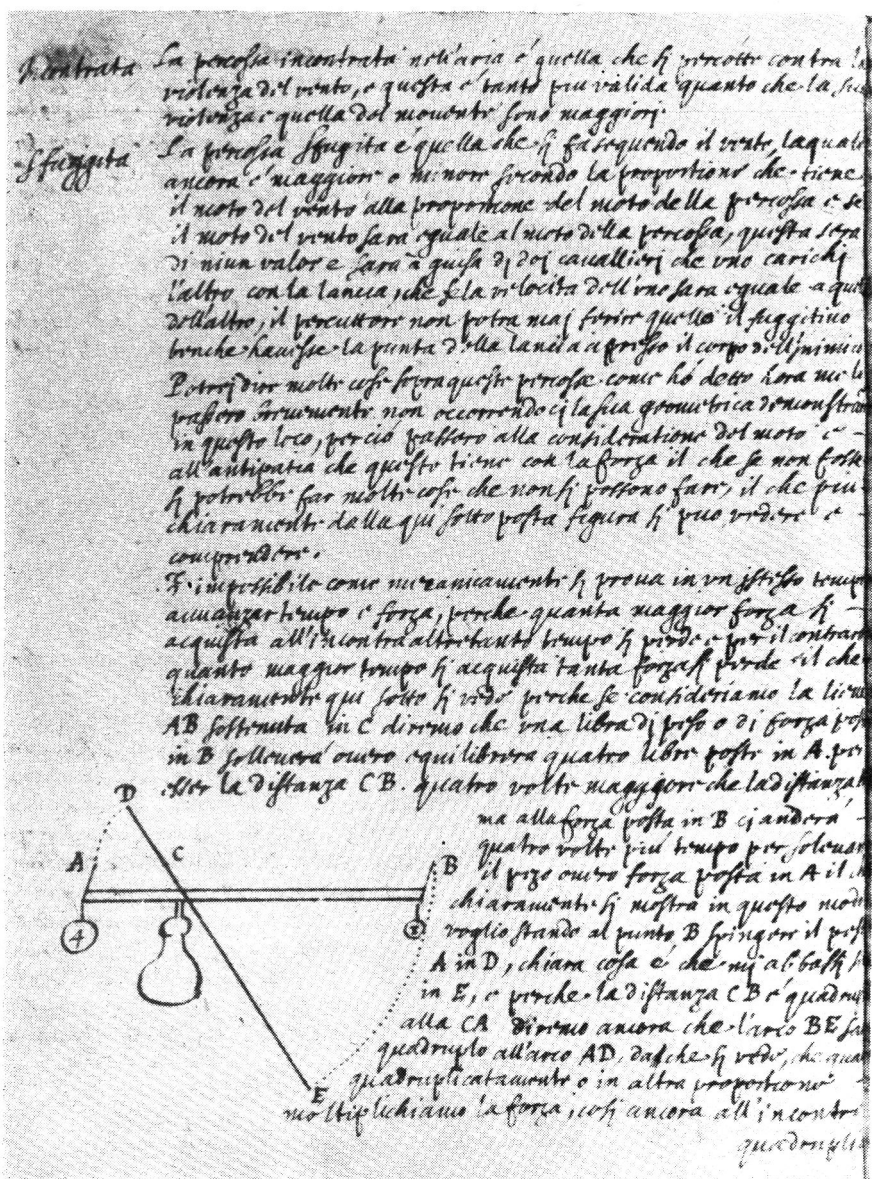 Incontrata
La percossa incontrata nell'aria é quella che si percotte contra la
violenza del vento, e questa é tanto piu valida quanto che la sua
violenza e quella del movente sono maggiori.
Sfuggita
La percossa sfugita é quella che si fa seguendo il vento, laquale
ancora é maggiore o minore secondo la proportione che tiene
il moto del vento alla proportione del moto della percossa e se
il moto del vento sara eguale al moto della percossa, questa sera
di niun valor e sara à guisa dj doj cavallieri che uno carichj
l'altro con la lancia, che se la velocita dell'uno sara eguale a quel
dell'altro, il percuttore non potra maj ferire quello il fuggitivo
benche havesse la punta della lancia apresso il corpo dell'inimico
Potrej dire molte cose sopra queste percosse come hó detto hora me la
passero brevemente non occorrendocj la sua geometrica demonstra
in questo loco, perció passero alla consideratione del moto e
all'antipatia che questo tiene con la forza il che se non fosse
si potrebbe far molte cose che non sj possono fare, il che piu
chiaramente dalla qui sotto posta figura si puo vedere e
comprendere.
E' impossibile come mecanicamente si prova in un istesso temp
avanzar tempo e forza, perche quanta maggior forza si
acquista all'incontra altretanto tempo si perde e per il contrar
quanto maggior tempo si acquista tanta forza si perde il che
chiaramente qui sotto si vede perche se consideriamo la lieva
AB sostenuta in C diremo che una libra dj peso o di forza pos
in B solleverá overo equilibrera quatro libre poste in A per
esser la distanza CB. quatro volte maggiore che la distanza
ma alla forza posta in B cj anderá
quatro volte piu tempo per solevar
il pezo overo forza posta in A il ch
chiaramente si mostra in questo mod
voglio stando al punto B spingere il pes
A in D, chiara cosa é che mj abbassi
in E, e perche la distanza CB é quadrup
alla CA diremo ancora che l'arco BE sa
quadruplo all'arco AD, dalche si vede, che qua
quadruplicatamente o in altra proportione
moltiplichiamo la forza, cosi ancora all'incontr
quadruplic
D
A
C
B
4
1
E